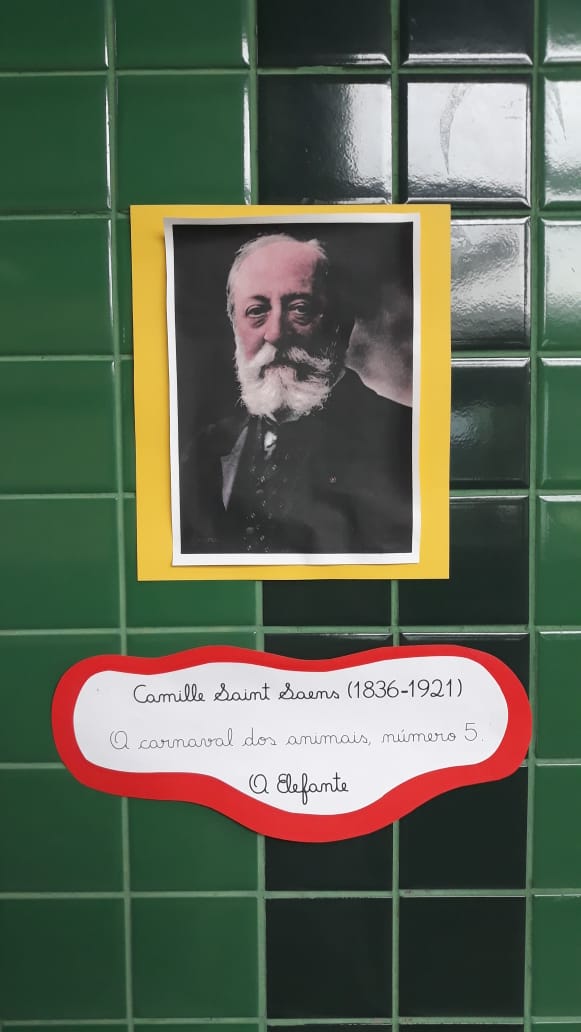 Camille Saint Saens (1836-1921)
O carnaval dos animais, número 5.
O Elefante